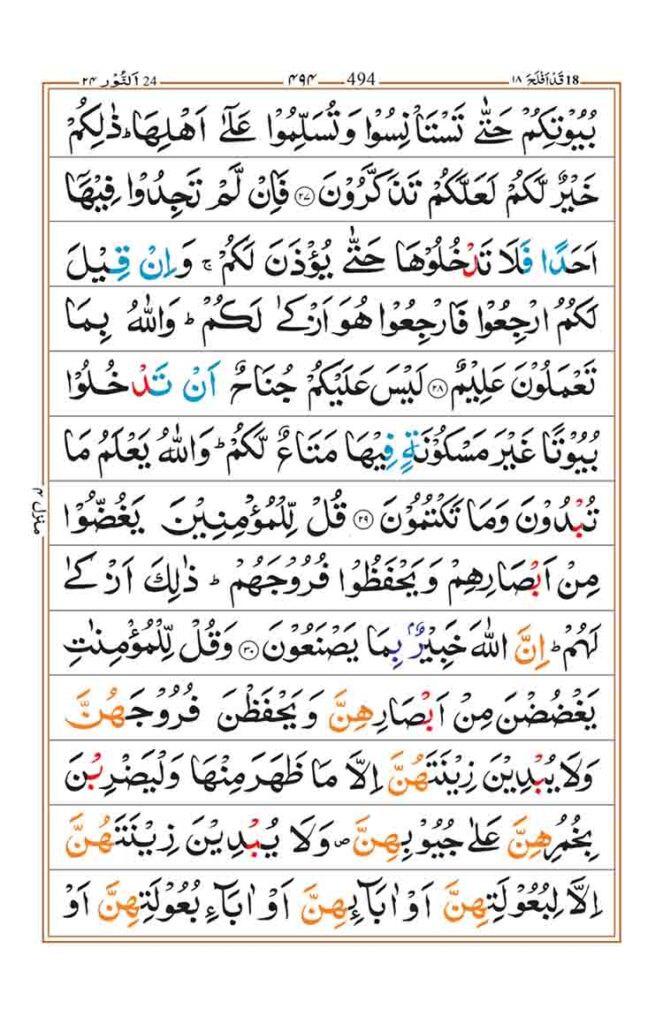 18 قَدۡاَفۡلَحَ ۱۸ 494 ۴۹۴ 24 اَلنُّوۡر ۲۴
بُيُوۡتِكُمۡ حَتّٰى تَسۡتَاۡنِسُوۡا وَتُسَلِّمُوۡا عَلٰٓى اَهۡلِهَا ؕ ذٰلِكُمۡ
خَيۡرٌ لَّكُمۡ لَعَلَّكُمۡ تَذَكَّرُوۡنَ ۲۷ فَاِنۡ لَّمۡ تَجِدُوۡا فِيۡهَاۤ
اَحَدًا فَلَا تَدۡخُلُوۡهَا حَتّٰى يُؤۡذَنَ لَكُمۡ ۚ وَاِنۡ قِيۡلَ
لَكُمُ ارۡجِعُوۡا فَارۡجِعُوۡا هُوَ اَزۡكٰى لَكُمۡ ؕ وَاللّٰهُ بِمَا
تَعۡمَلُوۡنَ عَلِيۡمٌ ۲۸ لَيۡسَ عَلَيۡكُمۡ جُنَاحٌ اَنۡ تَدۡخُلُوۡا
بُيُوۡتًا غَيۡرَ مَسۡكُوۡنَةٍ فِيۡهَا مَتَاعٌ لَّكُمۡ ؕ وَاللّٰهُ يَعۡلَمُ مَا
تُبۡدُوۡنَ وَمَا تَكۡتُمُوۡنَ ۲۹ قُلْ لِّلۡمُؤۡمِنِيۡنَ يَغُضُّوۡا
مِنۡ اَبۡصَارِهِمۡ وَيَحۡفَظُوۡا فُرُوۡجَهُمۡ ؕ ذٰلِكَ اَزۡكٰى
لَهُمۡ ؕ اِنَّ اللّٰهَ خَبِيۡرٌۢ بِمَا يَصۡنَعُوۡنَ ۳۰ وَقُلْ لِّلۡمُؤۡمِنٰتِ
يَغۡضُضۡنَ مِنۡ اَبۡصَارِهِنَّ وَيَحۡفَظۡنَ فُرُوۡجَهُنَّ
وَلَا يُبۡدِيۡنَ زِيۡنَتَهُنَّ اِلَّا مَا ظَهَرَ مِنۡهَا وَلۡيَضۡرِبۡنَ
بِخُمُرِهِنَّ عَلٰى جُيُوۡبِهِنَّ ۖ وَلَا يُبۡدِيۡنَ زِيۡنَتَهُنَّ
اِلَّا لِبُعُوۡلَتِهِنَّ اَوۡ اٰبَآٮِٕهِنَّ اَوۡ اٰبَآءِ بُعُوۡلَتِهِنَّ اَوۡ
منزل ۴